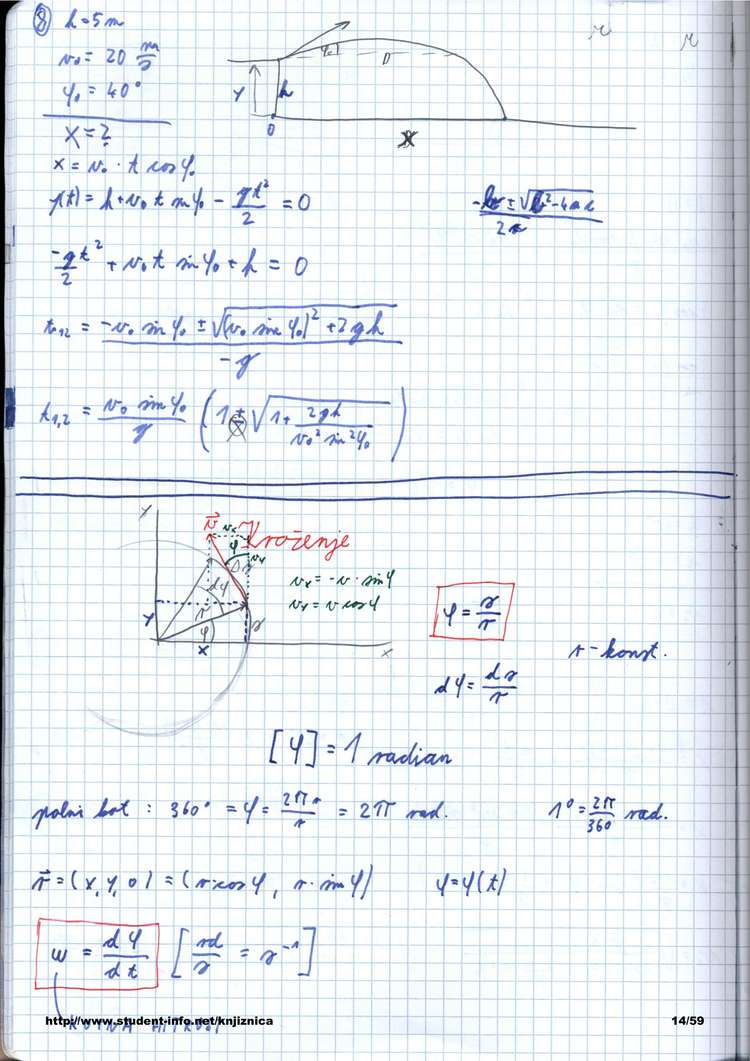 8 h = 5 m
v₀ = 20 m/s
φ₀ = 40°
x = ?
x = v₀ · t cosφ₀
y(t) = h + v₀ t sinφ₀ - gt²/2 = 0
-b ± √(b² - 4ac) / 2a
-gt²/2 + v₀ t sinφ₀ + h = 0
t₁,₂ = (-v₀ sinφ₀ ± √((v₀ sinφ₀)² + 2gh)) / -g
t₁,₂ = v₀ sinφ₀ / g (1 ± √(1 + 2gh / v₀² sin²φ₀))
y h φ₀ D
0 x
Kroženje
y v⃗ vₓ φ v_y Ds dφ
r φ s
y x x
vₓ = -v · sinφ
vₓ = v cosφ
φ = s/r
r - konst.
dφ = ds/r
[φ] = 1 radian
polni kot : 360° = φ = 2πr/r = 2π rad.
1° = 2π/360 rad.
r⃗ = (x, y, 0) = (r·cosφ, r·sinφ)
φ = φ(t)
ω = dφ/dt [rd/s = s⁻¹]
http://www.student-info.net/knjiznica
14/59